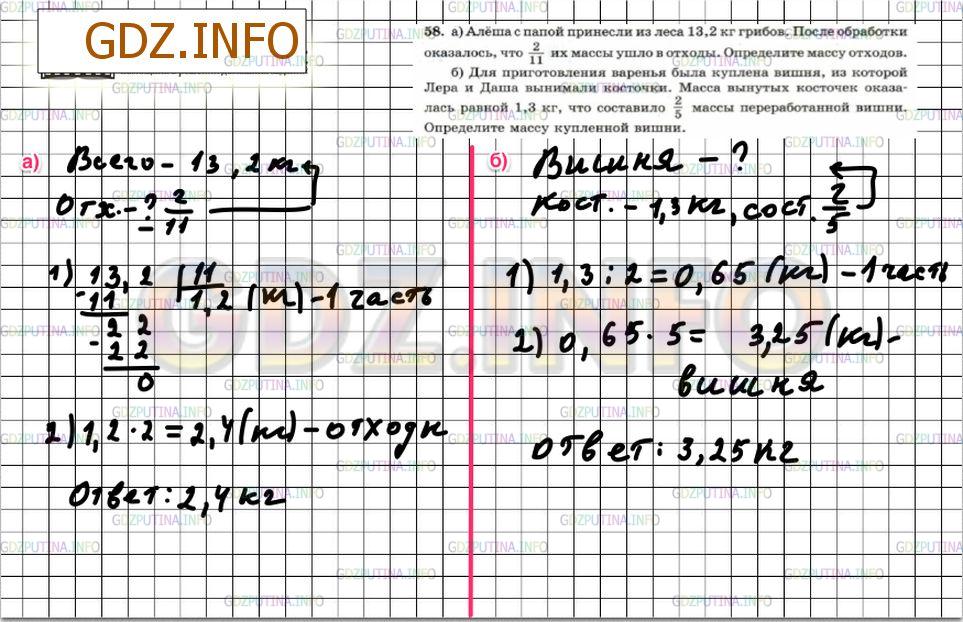 GDZ.INFO
58. а) Алёша с папой принесли из леса 13,2 кг грибов. После обработки
оказалось, что 2/11 их массы ушло в отходы. Определите массу отходов.
б) Для приготовления варенья была куплена вишня, из которой
Лера и Даша вынимали косточки. Масса вынутых косточек оказа-
лась равной 1,3 кг, что составило 2/5 массы переработанной вишни.
Определите массу купленной вишни.
а)
Всего – 13,2 кг
Отх. – ? 2/11
1) 13,2 | 11
-11 1,2 (кг) – 1 часть
2 2
- 2 2
0
2) 1,2 · 2 = 2,4 (кг) – отходы
Ответ: 2,4 кг
б)
Вишня – ?
Кост. – 1,3 кг, сост. 2/5
1) 1,3 : 2 = 0,65 (кг) – 1 часть
2) 0,65 · 5 = 3,25 (кг) –
вишня
Ответ: 3,25 кг
GDZ.INFO
GDZPUTINA.INFO